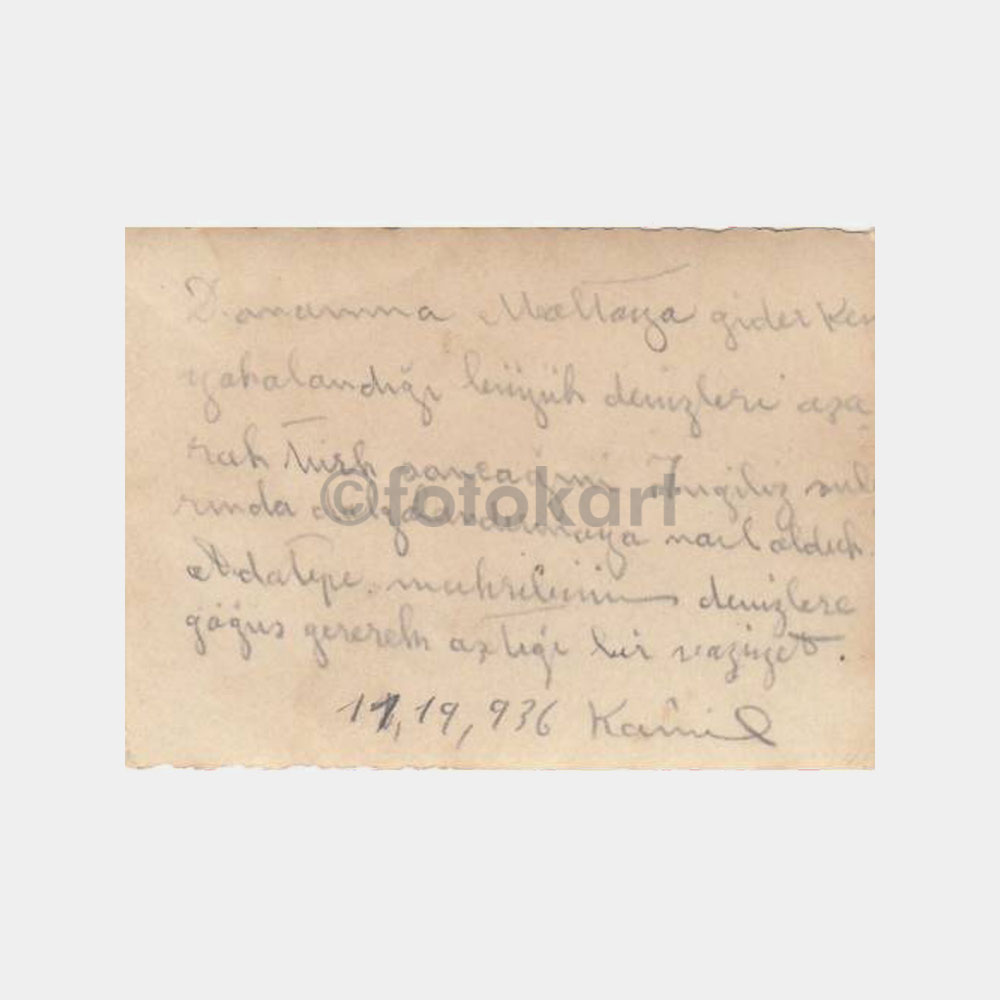 Donanma Maltaya giderken
yakalandığı büyük denizleri aşa
rak Türk sancağını İngiliz sula
rında dalgalandırmaya nail olduk.
Adatepe muhribinin denizlere
göğüs gererek aştığı bir vaziyet.
11, 19, 936 Kâmil
©fotokart